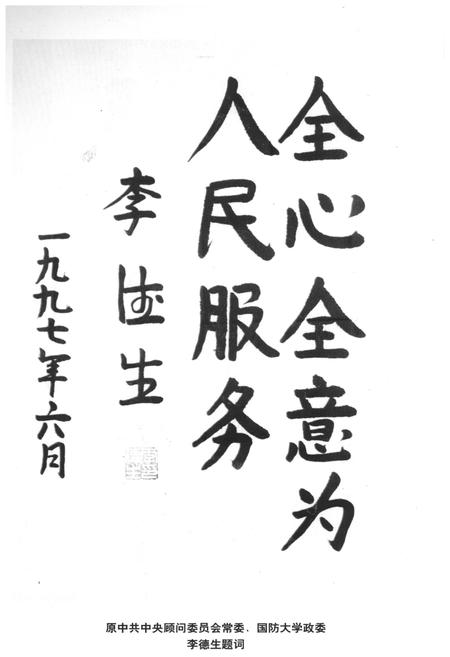 全心全意为
人民服务
李德生
一九九七年六月
原中共中央顾问委员会常委、国防大学政委
李德生题词